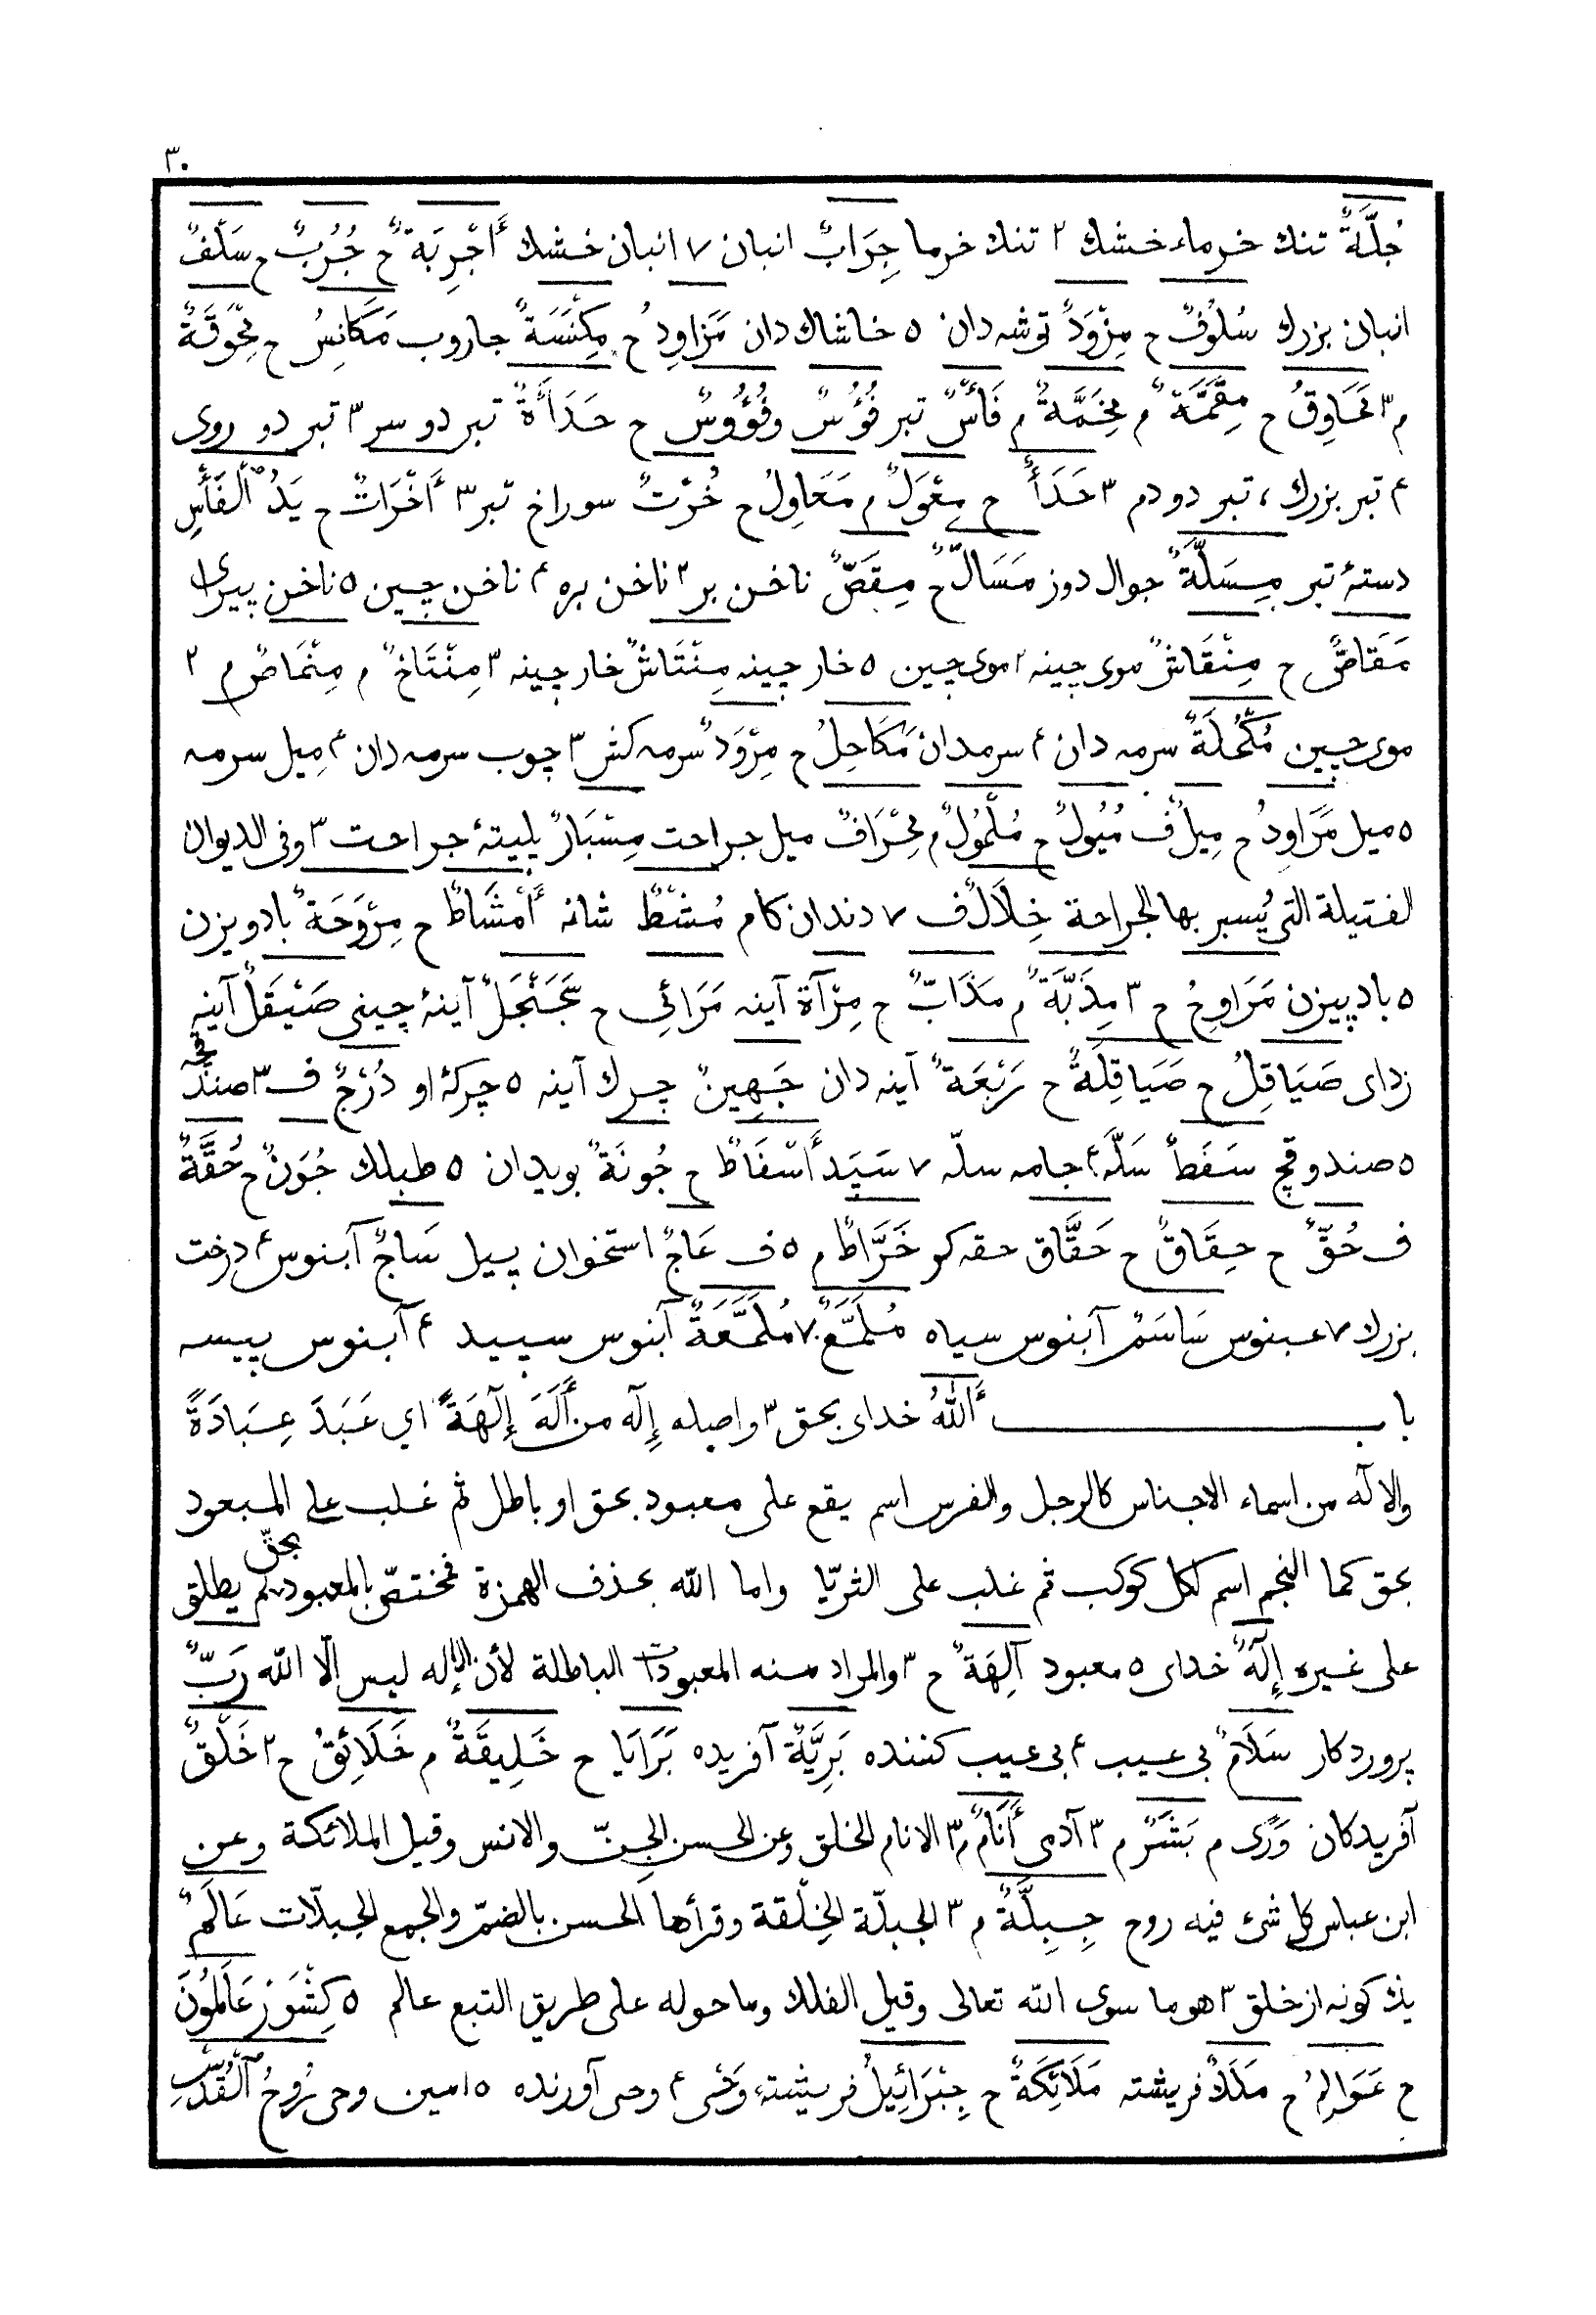 ٣٠
جُلَّةٌ تنك خرماء خشك ٢ تنك خرما جِرَابٌ انبان ٧ انبان خشك أَجْرِبَةٌ ح جُرُبٌ ح سَلْفٌ
انبان بزرك سُلُوفٌ ح مِزْوَدٌ توشه دان ٥ خاشاك دان مَزَاوِدُ ح مِكْنَسَةٌ جاروب مَكَانِسُ ح مِحْوَقَةٌ
م ٣ مَحَاوِقُ ح مِقَمَّةٌ م مِخَمَّةٌ م فَأْسٌ تبر فُؤُسٌ وفُؤُوسٌ ح حَدَأَةٌ تبر دو سر ٣ تبر دو روى
٤ تبر بزرك ، تبر دو دم ٣ حَدَأٌ ح مِعْوَلٌ م مَعَاوِلُ ح خُرْتٌ سوراخ تبر ٣ أَخْرَاتٌ ح يَدُ ٱلْفَأْسِ
دستهٔ تبر مِسَلَّةٌ جوال دوز مَسَالُّ ح مِقَصٌّ ناخن بر ٢ ناخن بره ٤ ناخن چين ٥ ناخن پيرا
مَقَاصُّ ح مِنْقَاشٌ موى چينه ٢ موى چين ٥ خار چينه مِنْتَاشٌ خار چينه ٣ مِنْتَاخٌ م مِنْمَاصٌ م ٢
موى چين مُكْحُلَةٌ سرمه دان ٤ سرمدان مَكَاحِلُ ح مِرْوَدٌ سرمه كش ٣ چوب سرمه دان ٤ مِيل سرمه
٥ ميل مَرَاوِدُ ح مِيلٌ ف مُيُولٌ ح مُلْمُولٌ م مِحْرَافٌ ميل جراحت مِسْبَارٌ پليتهٔ جراحت ٣ وفى الديوان
الفتيلة التى يُسبر بها الجراحة خِلَالٌ ف ٧ دندان كام مُشْطٌ شانه أَمْشَاطٌ ح مِرْوَحَةٌ بادويزن
٥ باد پيزن مَرَاوِحُ ح ٣ مِذَبَّةٌ م مَذَابُّ ح مِرْآة آينه مَرَائِى ح سَجَنْجَلٌ آينهٔ چينى صَيْقَلٌ آينه
زداى صَيَاقِلُ ح صَيَاقِلَةٌ ح رَبْعَةٌ آينه دان جَهِينٌ چرك آينه ٥ چركهٔ او دُرْجٌ ف ٣ صندقچه
٥ صندوقچ سَفَطٌ سَلَّه ٤ جامه سلّه ٧ سَبَد أَسْفَاطٌ ح جُونَةٌ بويدان ٥ طبلك جُوَنٌ ح حُقَّةٌ
ف حُقٌّ ح حِقَاقٌ ح حَقَّاق حقه كر خَرَّاطٌ م ٥ ف عَاجٌ استخوان پيل سَاجٌ آبنوس ٤ درخت
بزرك ٧ عبنوس سَاسَمٌ آبنوس سياه مُلَمَّعٌ ٧ مُلَمَّعَةٌ آبنوس سپيد ٤ آبنوس پيسه
باب أَللّٰهُ خداى بحق ٣ واصله إِلٰه من أَلَهَ إِلَهَةً اي عَبَدَ عِبَادَةً
والاله من اسماء الاجناس كالرجل والفرس اسم يقع على معبود بحق او باطل ثم غلب على المبعود
بحق كما النجم اسم لكل كوكب ثم غلب على الثريّا واما الله بحذف الهمزة فمختصّ بالمعبود بحقّ لم يطلق
على غيره إِلٰهٌ خداى ٥ معبود آلِهَةٌ ح ٣ والمراد منه المعبودات الباطلة لأن الإله ليس الّا الله رَبٌّ
پروردكار سَلَامٌ بى عيب ٤ بى عيب كننده بَرِيَّةٌ آفريده بَرَايَا ح خَلِيقَةٌ م خَلَائِقُ ح ٢ خَلْقٌ
آفريدكان وَرًى م بَشَرٌ م ٣ آدمى أَنَامٌ م ٣ الانام الخلق وعن الحسن الجِنّ والانس وقيل الملائكة وعن
ابن عباس كل شئ فيه روح جِبِلَّةٌ م ٣ الجبلّة الخِلْقة وقرأها الحسن بالضمّ والجمع الجبلّات عَالَمٌ
يك كونه از خلق ٣ هو ما سوى الله تعالى وقيل الفلك وما حوله على طريق التبع عالم ٥ كِشْوَر عَالَمُونَ
ح عَوَالِمُ ح مَلَكٌ فريشته مَلَائِكَةٌ ح جِبْرَائِيلُ فريشتهٔ وَحْى ٤ وحى آورنده ٥ امين وحى رُوحُ ٱلْقُدُسِ